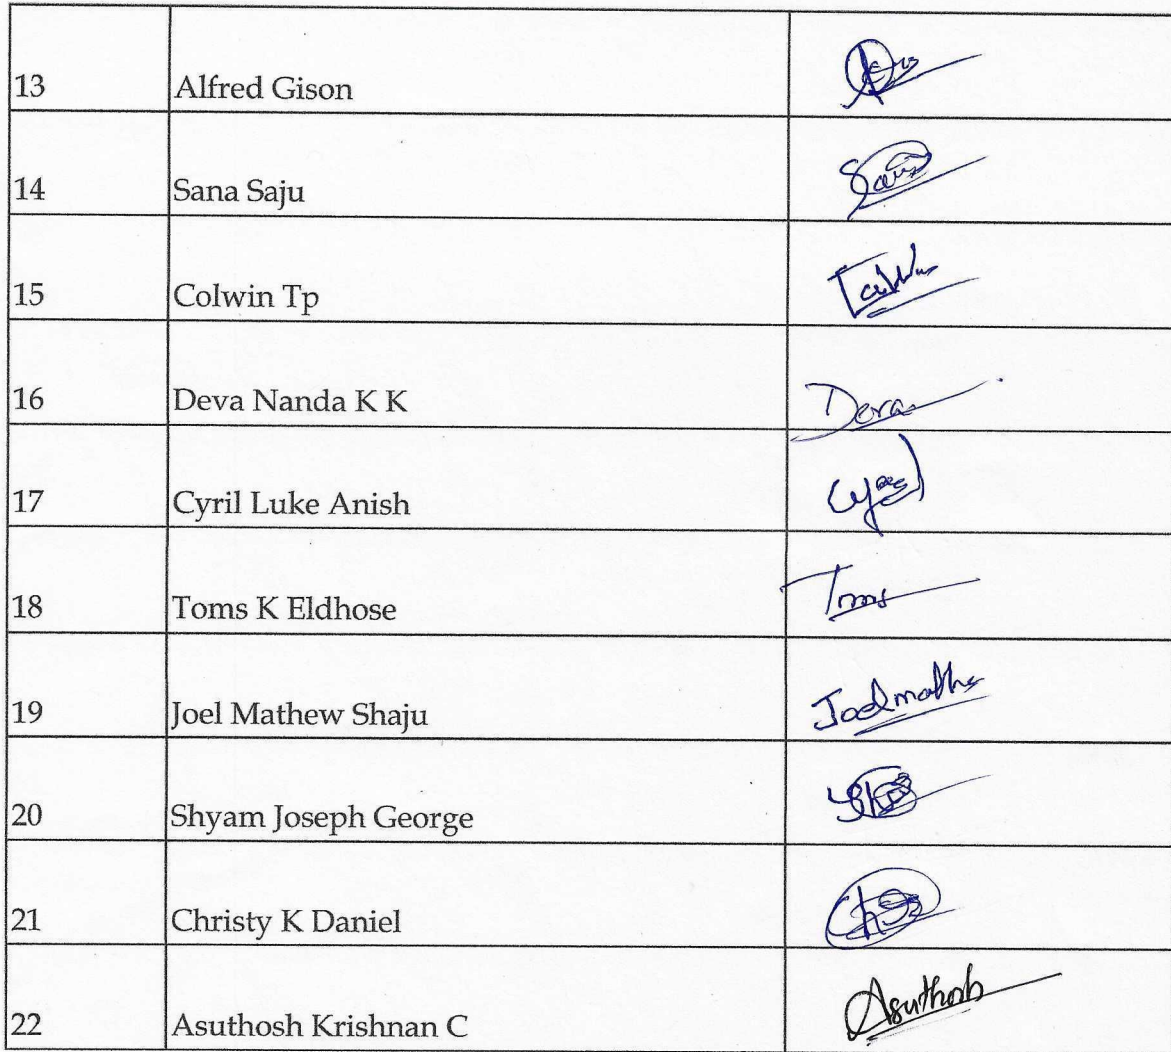 13 Alfred Gison
14 Sana Saju
15 Colwin Tp
16 Deva Nanda K K Deva
17 Cyril Luke Anish
18 Toms K Eldhose Toms
19 Joel Mathew Shaju
20 Shyam Joseph George
21 Christy K Daniel
22 Asuthosh Krishnan C Asuthosh